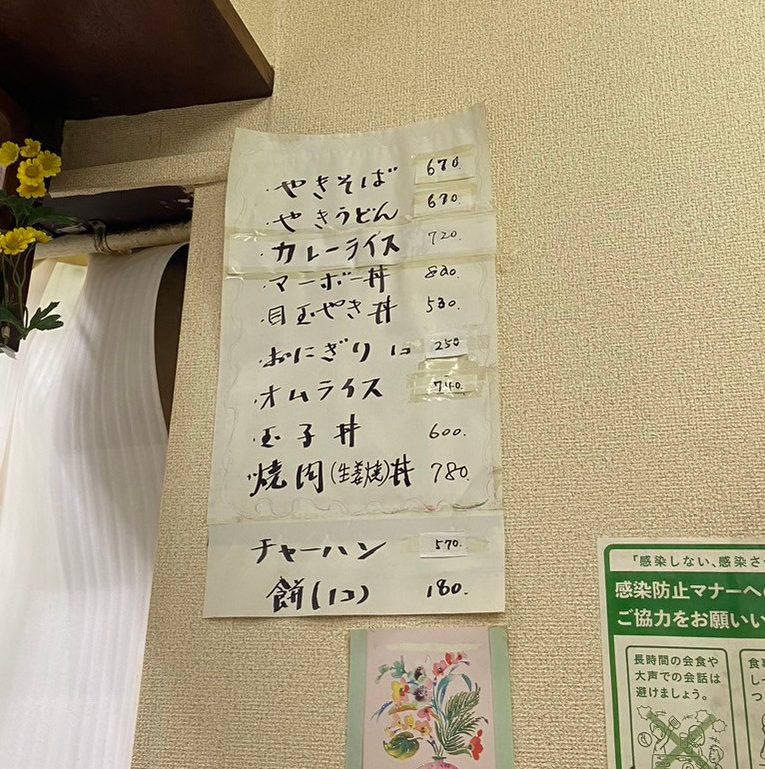 ・やきそば 670.
・やきうどん 670.
・カレーライス 720.
・マーボー丼 820.
・目玉やき丼 530.
・おにぎり 1コ 250
・オムライス 740.
・玉子丼 600.
・焼肉(生姜焼)丼 780.
チャーハン 570.
餅(1コ) 180.
「感染しない、感染さ
感染防止マナーへの
ご協力をお願いい
長時間の会食や
大声での会話は
避けましょう。
食事
し
つ